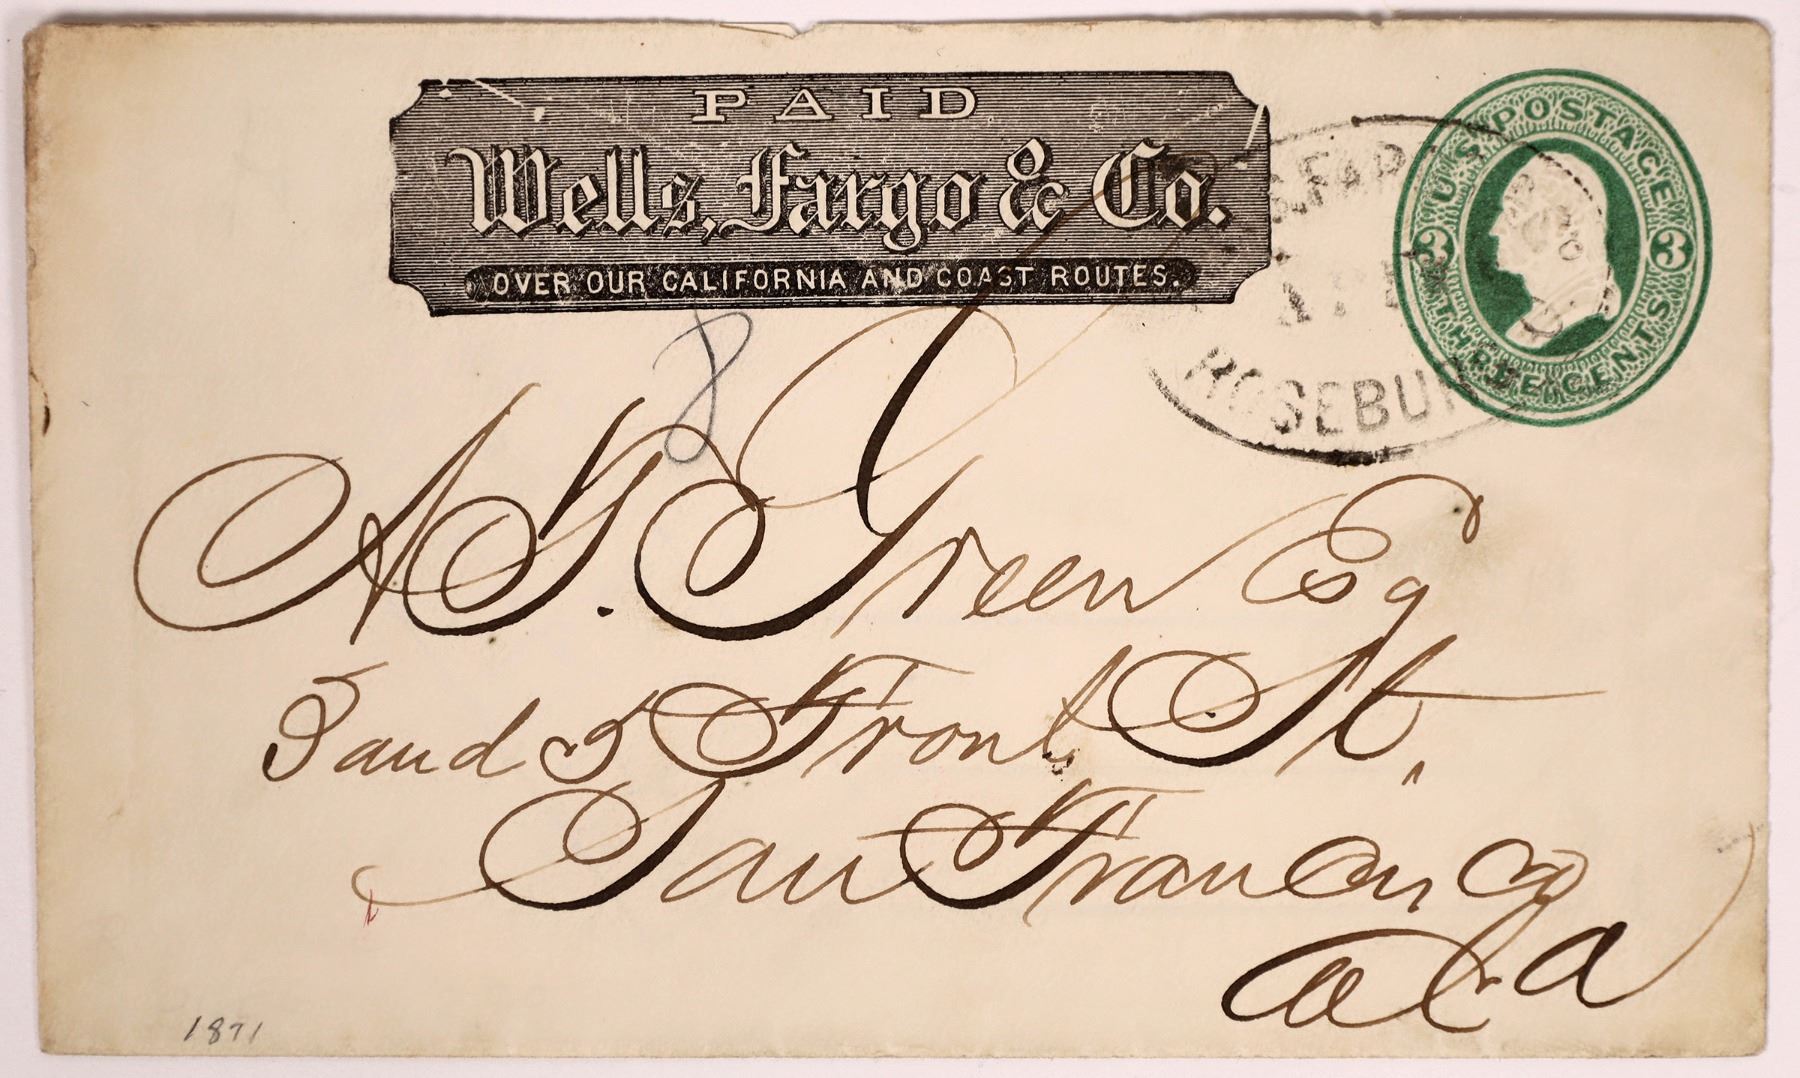 PAID
Wells, Fargo & Co.
OVER OUR CALIFORNIA AND COAST ROUTES.
U.S. POSTAGE
3 3
THREE CENTS
ROSEBU
8
A. G. Green Esq
3 and 5 Front St.
San Francisco
Cala
1871